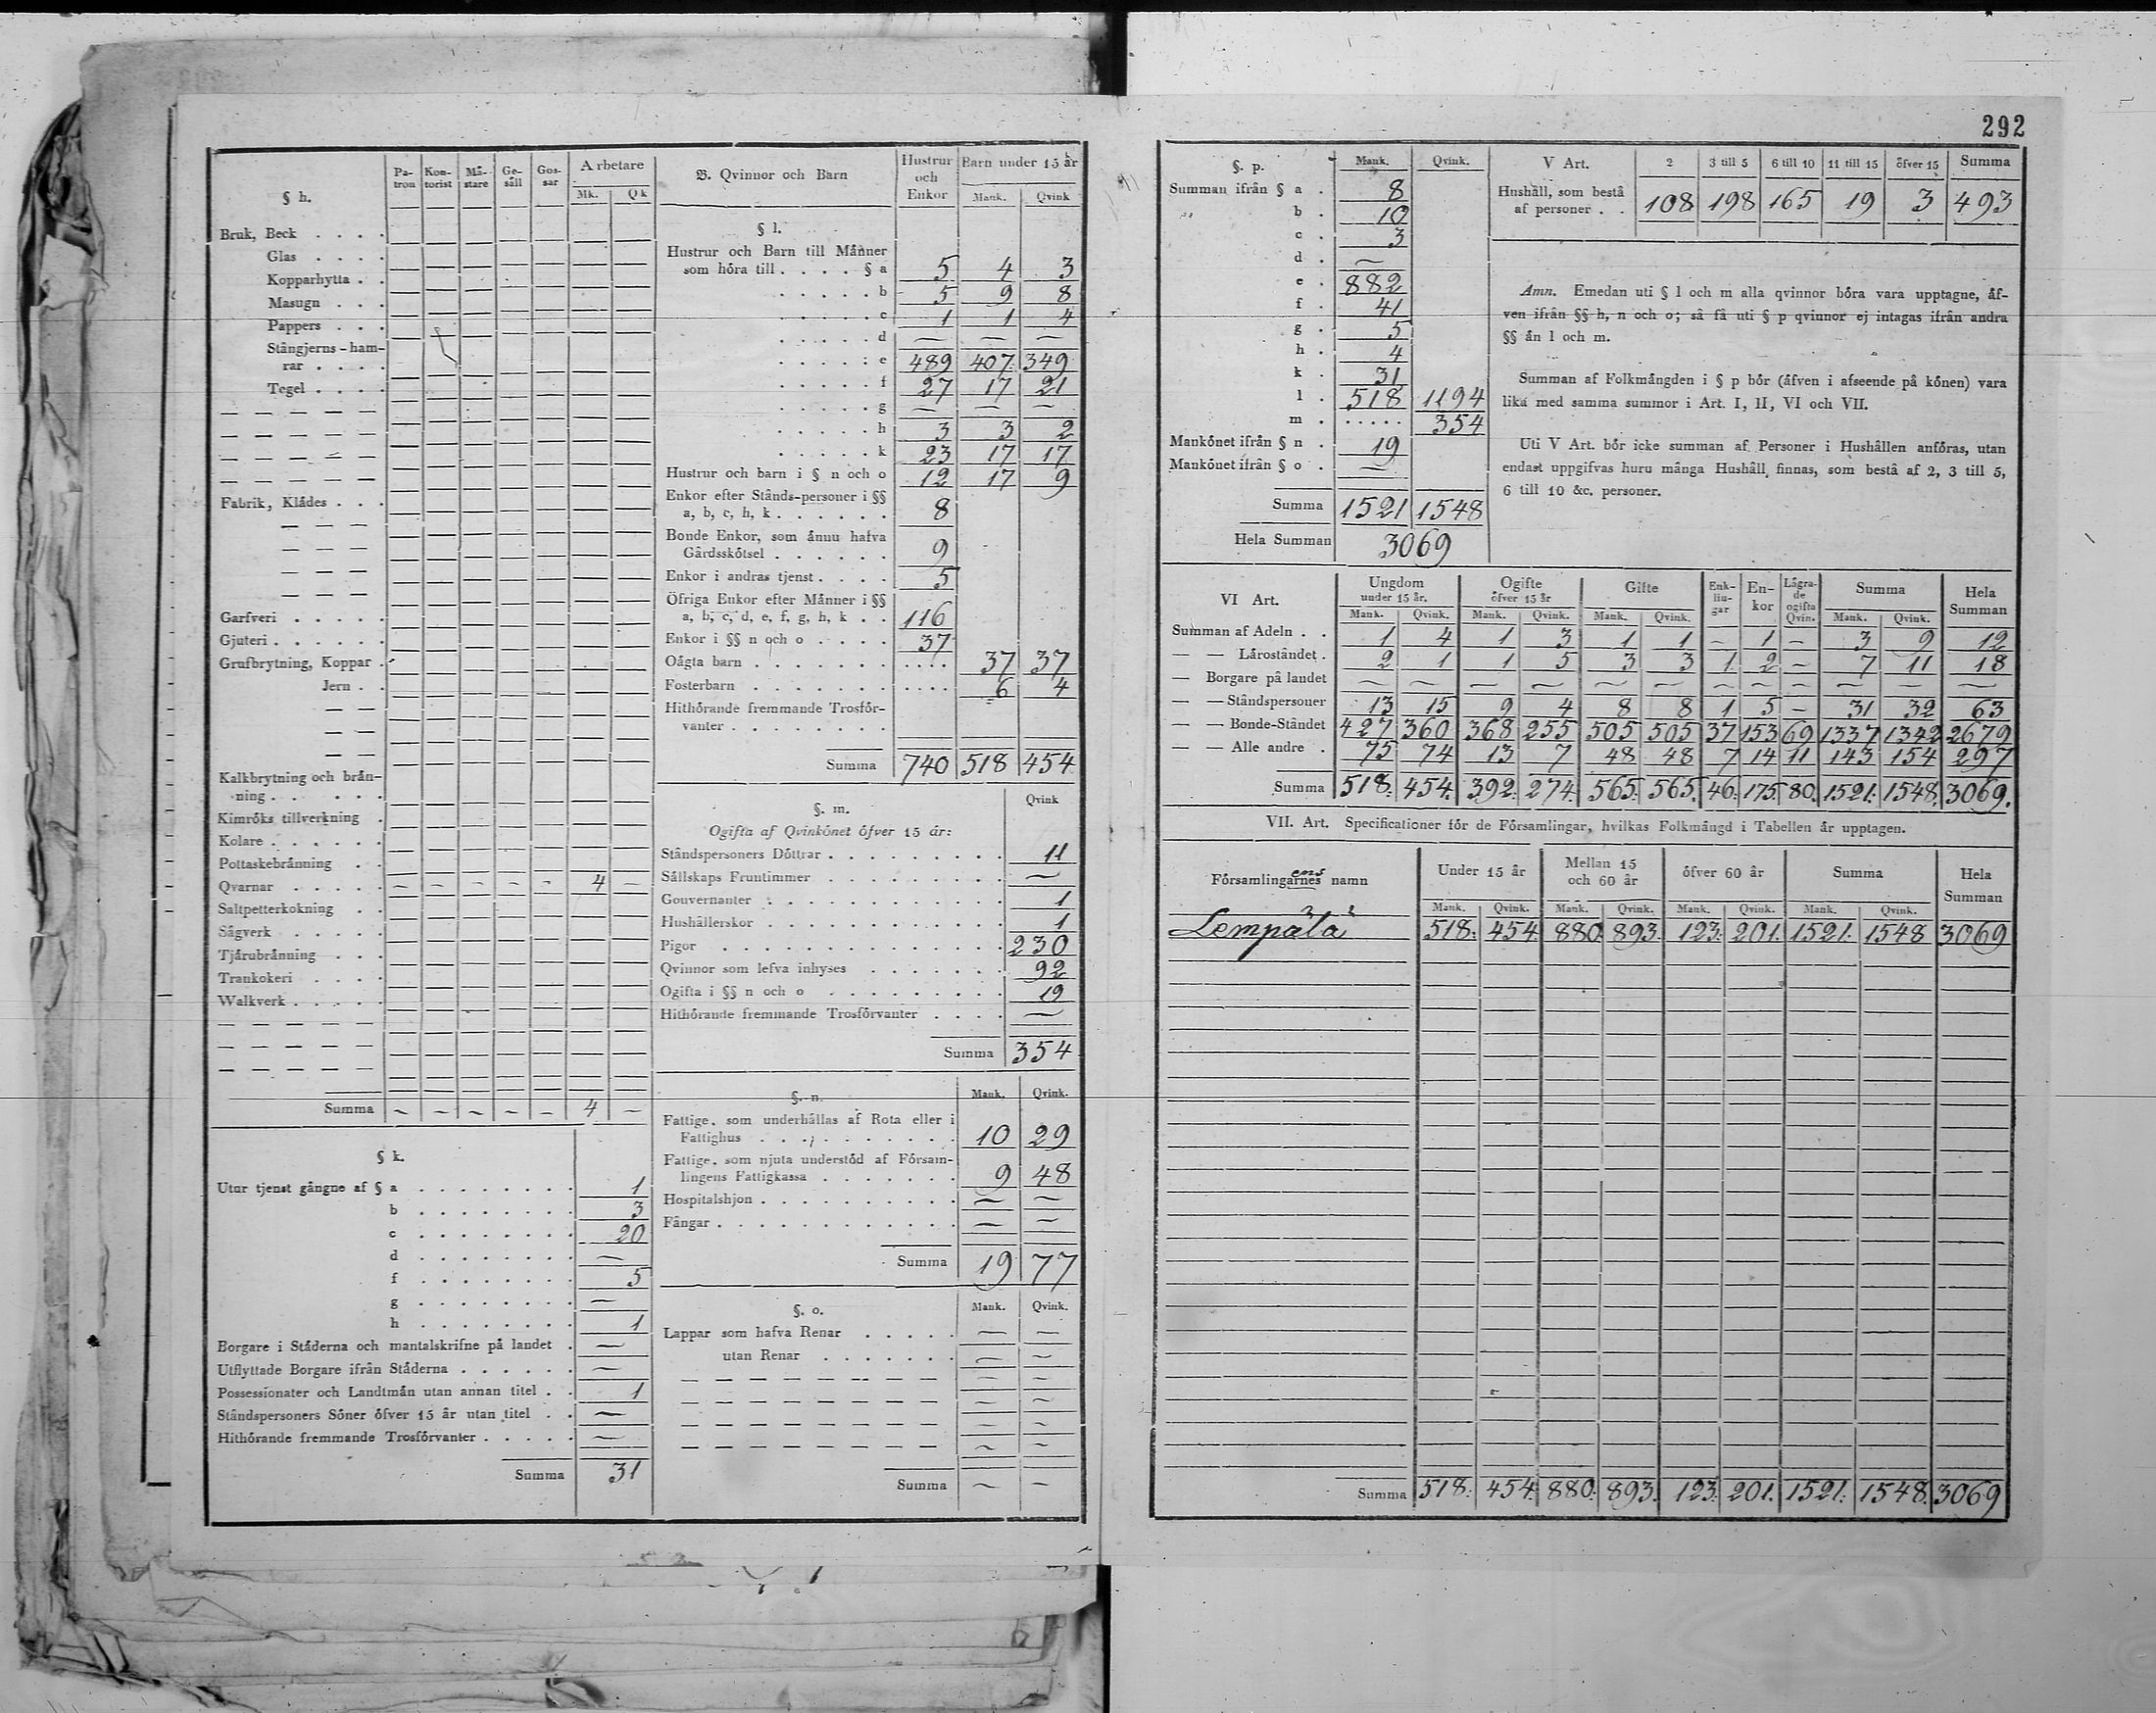 292
§ h. Pa-tron Kon-torist Må-stare Ge-säll Gos-sar Arbetare Mk. Qk
Bruk, Beck . . . .
Glas . . . .
Kopparhytta . .
Masugn . . .
Pappers . . .
Stångjerns-ham-
rar . . . .
Tegel . . . .
Fabrik, Klådes . . .
Garfveri . . . . .
Gjuteri . . . . . .
Grufbrytning, Koppar .
Jern . .
Kalkbrytning och brån-
ning . . . . . .
Kimröks tillverkning .
Kolare . . . . . .
Pottaskebrånning . .
Qvarnar . . . . . – – – – – 4 –
Saltpetterkokning . .
Sågverk . . . . .
Tjårubrånning . . .
Trankokeri . . . .
Walkverk . . . . .
Summa – – – – – 4 –
§ k.
Utur tjenst gångne af § a . . . . . . . . 1
b . . . . . . . . 3
c . . . . . . . . 20
d . . . . . . . . —
f . . . . . . . . 5
g . . . . . . . . —
h . . . . . . . . 1
Borgare i Ståderna och mantalskrifne på landet . —
Utflyttade Borgare ifrån Ståderna . . . . . —
Possessionater och Landtmån utan annan titel . . 1
Ståndspersoners Söner öfver 15 år utan titel . . —
Hithörande fremmande Trosförvanter . . . . . —
Summa 31
B. Qvinnor och Barn Hustrur och Enkor Barn under 15 år Mank. Qvink
§ l.
Hustrur och Barn till Månner
som höra till . . . . § a 5 4 3
. . . . . b 5 9 8
. . . . . c 1 1 4
. . . . . d — — —
. . . . . e 489 407 349
. . . . . f 27 17 21
. . . . . g — — —
. . . . . h 3 3 2
. . . . . k 23 17 17
Hustrur och barn i § n och o 12 17 9
Enkor efter Stånds-personer i §§
a, b, c, h, k . . . . . . 8
Bonde Enkor, som ånnu hafva
Gårdsskötsel . . . . . . 9
Enkor i andras tjenst . . . . 5
Öfriga Enkor efter Månner i §§
a, b, c, d, e, f, g, h, k . . 116
Enkor i §§ n och o . . . . 37
Oågta barn . . . . . . . . . . . 37 37
Fosterbarn . . . . . . . . . . . 6 4
Hithörande fremmande Trosför-
vanter . . . . . . . .
Summa 740 518 454
§. m. Qvink
Ogifta af Qvinkönet öfver 15 år:
Ståndspersoners Döttrar . . . . . . . . . 11
Sållskaps Fruntimmer . . . . . . . . . —
Gouvernanter . . . . . . . . . . . . 1
Hushållerskor . . . . . . . . . . . . 1
Pigor . . . . . . . . . . . . . . 230
Qvinnor som lefva inhyses . . . . . . 92
Ogifta i §§ n och o . . . . . . . . . 19
Hithörande fremmande Trosförvanter . . . . —
Summa 354
§. n. Mank. Qvink.
Fattige, som underhållas af Rota eller i
Fattighus . . . . . . . . . . 10 29
Fattige, som njuta understöd af Försam-
lingens Fattigkassa . . . . . . . 9 48
Hospitalshjon . . . . . . . . . . — —
Fångar . . . . . . . . . . . . — —
Summa 19 77
§. o. Mank. Qvink.
Lappar som hafva Renar . . . . . — —
utan Renar . . . . . . . — —
Summa — —
§. p. Mank. Qvink.
Summan ifrån § a . 8
„ b . 10
c . 3
d . —
e . 882
f . 41
g . 5
h . 4
k . 31
l . 518 1194
m . . . . . . 354
Mankönet ifrån § n . 19
Mankönet ifrån § o . —
Summa 1521 1548
Hela Summan 3069
V Art. 2 3 till 5 6 till 10 11 till 15 öfver 15 Summa
Hushåll, som bestå
af personer . . 108 198 165 19 3 493
Amn. Emedan uti § l och m alla qvinnor böra vara upptagne, åf-
ven ifrån §§ h, n och o; så få uti § p qvinnor ej intagas ifrån andra
§§ ån l och m.
Summan af Folkmångden i § p bör (åfven i afseende på könen) vara
lika med samma summor i Art. I, II, VI och VII.
Uti V Art. bör icke summan af Personer i Hushållen anföras, utan
endast uppgifvas huru många Hushåll finnas, som bestå af 2, 3 till 5,
6 till 10 &c. personer.
VI Art. Ungdom under 15 år. Ogifte öfver 15 år Gifte Enk-lin-gar En-kor Lågra-de ogifta Qvin. Summa Hela Summan
Mank. Qvink. Mank. Qvink. Mank. Qvink. Mank. Qvink.
Summan af Adeln . . 1 4 1 3 1 1 – 1 – 3 9 12
— — Låroståndet . 2 1 1 5 3 3 1 2 – 7 11 18
— Borgare på landet — — — — — — — — — — — —
— — Ståndspersoner 13 15 9 4 8 8 1 5 – 31 32 63
— — Bonde-Ståndet 427 360 368 255 505 505 37 153 69 1337 1342 2679
— — Alle andre . 75 74 13 7 48 48 7 14 11 143 154 297
Summa 518. 454. 392. 274. 565. 565. 46. 175. 80. 1521. 1548. 3069.
VII. Art. Specificationer för de Församlingar, hvilkas Folkmångd i Tabellen år upptagen.
Församlingarnes ens namn Under 15 år Mellan 15 och 60 år öfver 60 år Summa Hela Summan
Mank. Qvink. Mank. Qvink. Mank. Qvink. Mank. Qvink.
Lempälä 518. 454 880. 893. 123. 201. 1521. 1548 3069
Summa 518. 454 880. 893. 123. 201. 1521. 1548. 3069